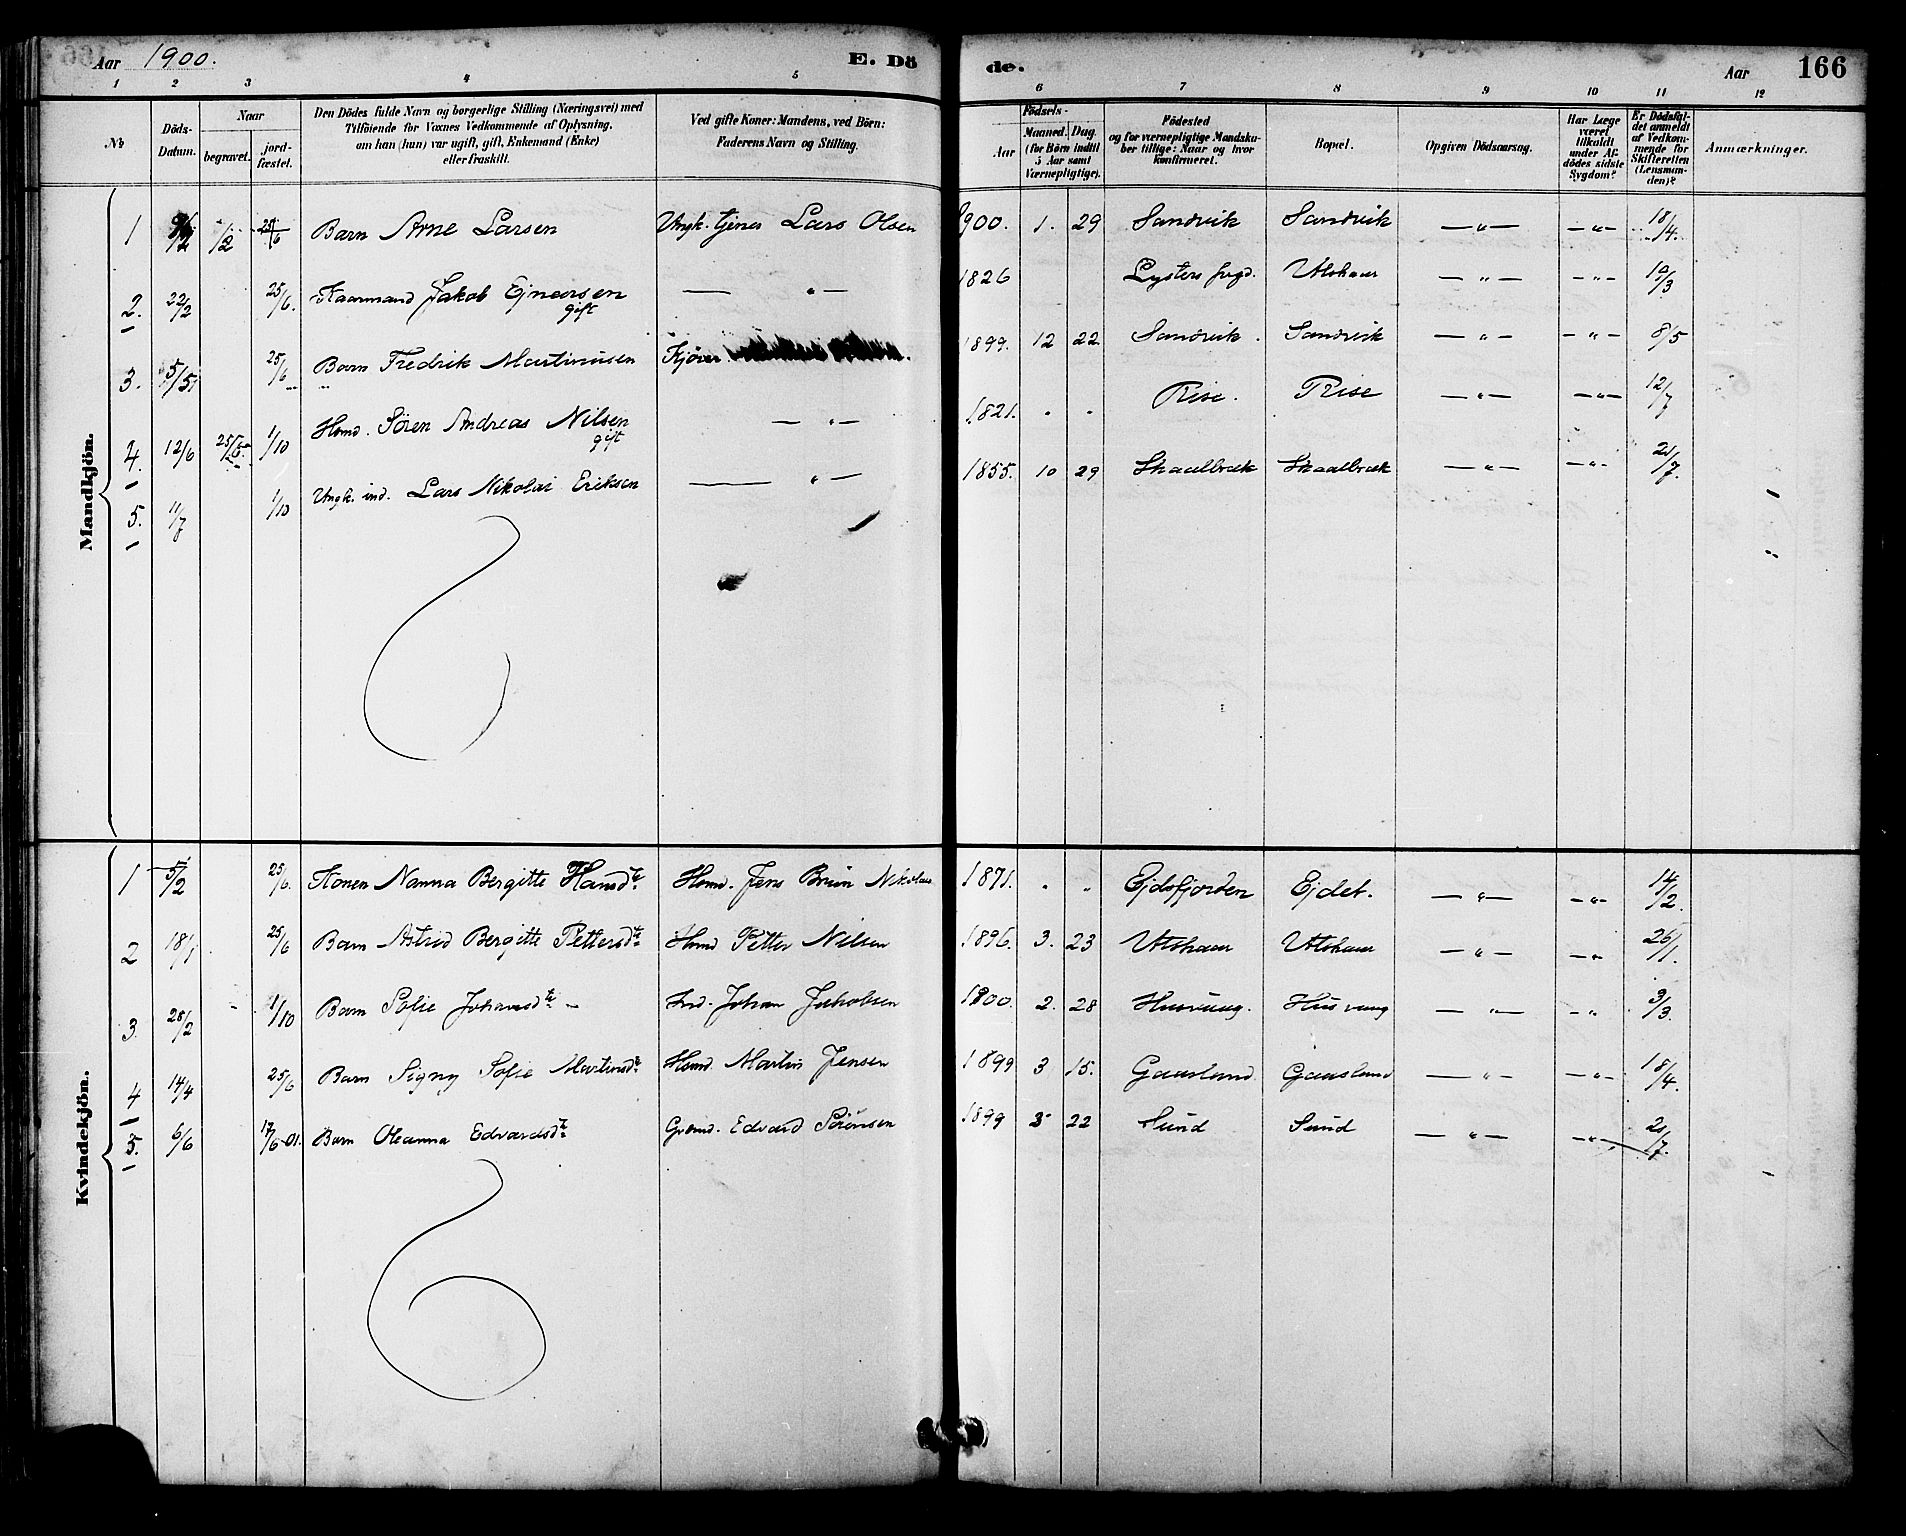 Aar 1900.
E. Dö
de.
Aar
166
1 2 3 4 5 6 7 8 9 10 11 12
No
Döds-Datum.
Naar
begravet.
jord-fæstet.
Den Dödes fulde Navn og borgerlige Stilling (Næringsvei) med
Tilföiende for Voxnes Vedkommende af Oplysning.
om han (hun) var ugift, gift, Enkemand (Enke)
eller fraskilt.
Ved gifte Koner: Mandens, ved Börn:
Faderens Navn og Stilling.
Födsels-
Aar
Maaned. Dag.
(for Börn indtil
5 Aar samt
Værnepligtige).
Födested
og for værnepligtige Mandska-
ber tillige: Naar og hvor
konfirmeret.
Bopæl.
Opgiven Dödsaarsag.
Har Læge
været
tilkaldt
under Af-
dödes sidste
Sygdom?
Er Dödsfal-
det anmeldt
af Vedkom-
mende for
Skifteretten
(Lensman-
den)?
Anmærkninger.
Mandkjön.
1 1/2 25/6 Barn Arne Larsen Ungk. tjener Lars Olsen 1900. 1. 29 Sandvik Sandvik — " — — " — 18/4.
2. 22/2 25/6. Kaarmand Jakob Ejnarsen — " — 1826 Lysters fogd. Alshaar — " — — " — 10/3
gift
3. 5/5 25/6 Barn Fredrik Martinusen 1899. 12 22 Sandvik. Sandvik — " — — " — 8/5
4. 12/6 25/6 1/10 Hsmd. Sören Andreas Nilsen — " — 1821. " " Rise. Rise — " — — " — 12/7
gift
5. 11/7 1/10 Ungk. ind. Lars Nikolai Eriksen — " — 1855. 10 29 Skaalbræk Skaalbræk — " — — " — 21/7.
Kvindekjön.
1 5/2 25/6. Konen Nanna Bergitte Hansdtr. Hsmd. Jens Brun Nikolais 1871. " " Ejdsfjorden Ejdet. — " — — " — 14/2.
2 18/1 25/6 Barn Astrid Bergitte Pettersdtr. Hsmd Petter Nilsen 1896. 3. 23 Alshaar Alshaar — " — — " — 26/1.
3 28/2 1/10 Barn Sofie Johansdtr. — Ind. Johan Jakobsen 1900. 2. 28 Husvaag. Husvaag — " — — " — 3/3.
4 14/4 25/6 Barn Signy Sofie Martinsdtr. Hsmd. Martin Jensen 1899 3 15. Gaasland Gaasland — " — — " — 18/4.
5. 6/6 17/6-01. Barn Oleanna Edvardsdtr. Grdmd. Edvard Sörensen 1899 3 22 Sund Sund — " — — " — 21/7.